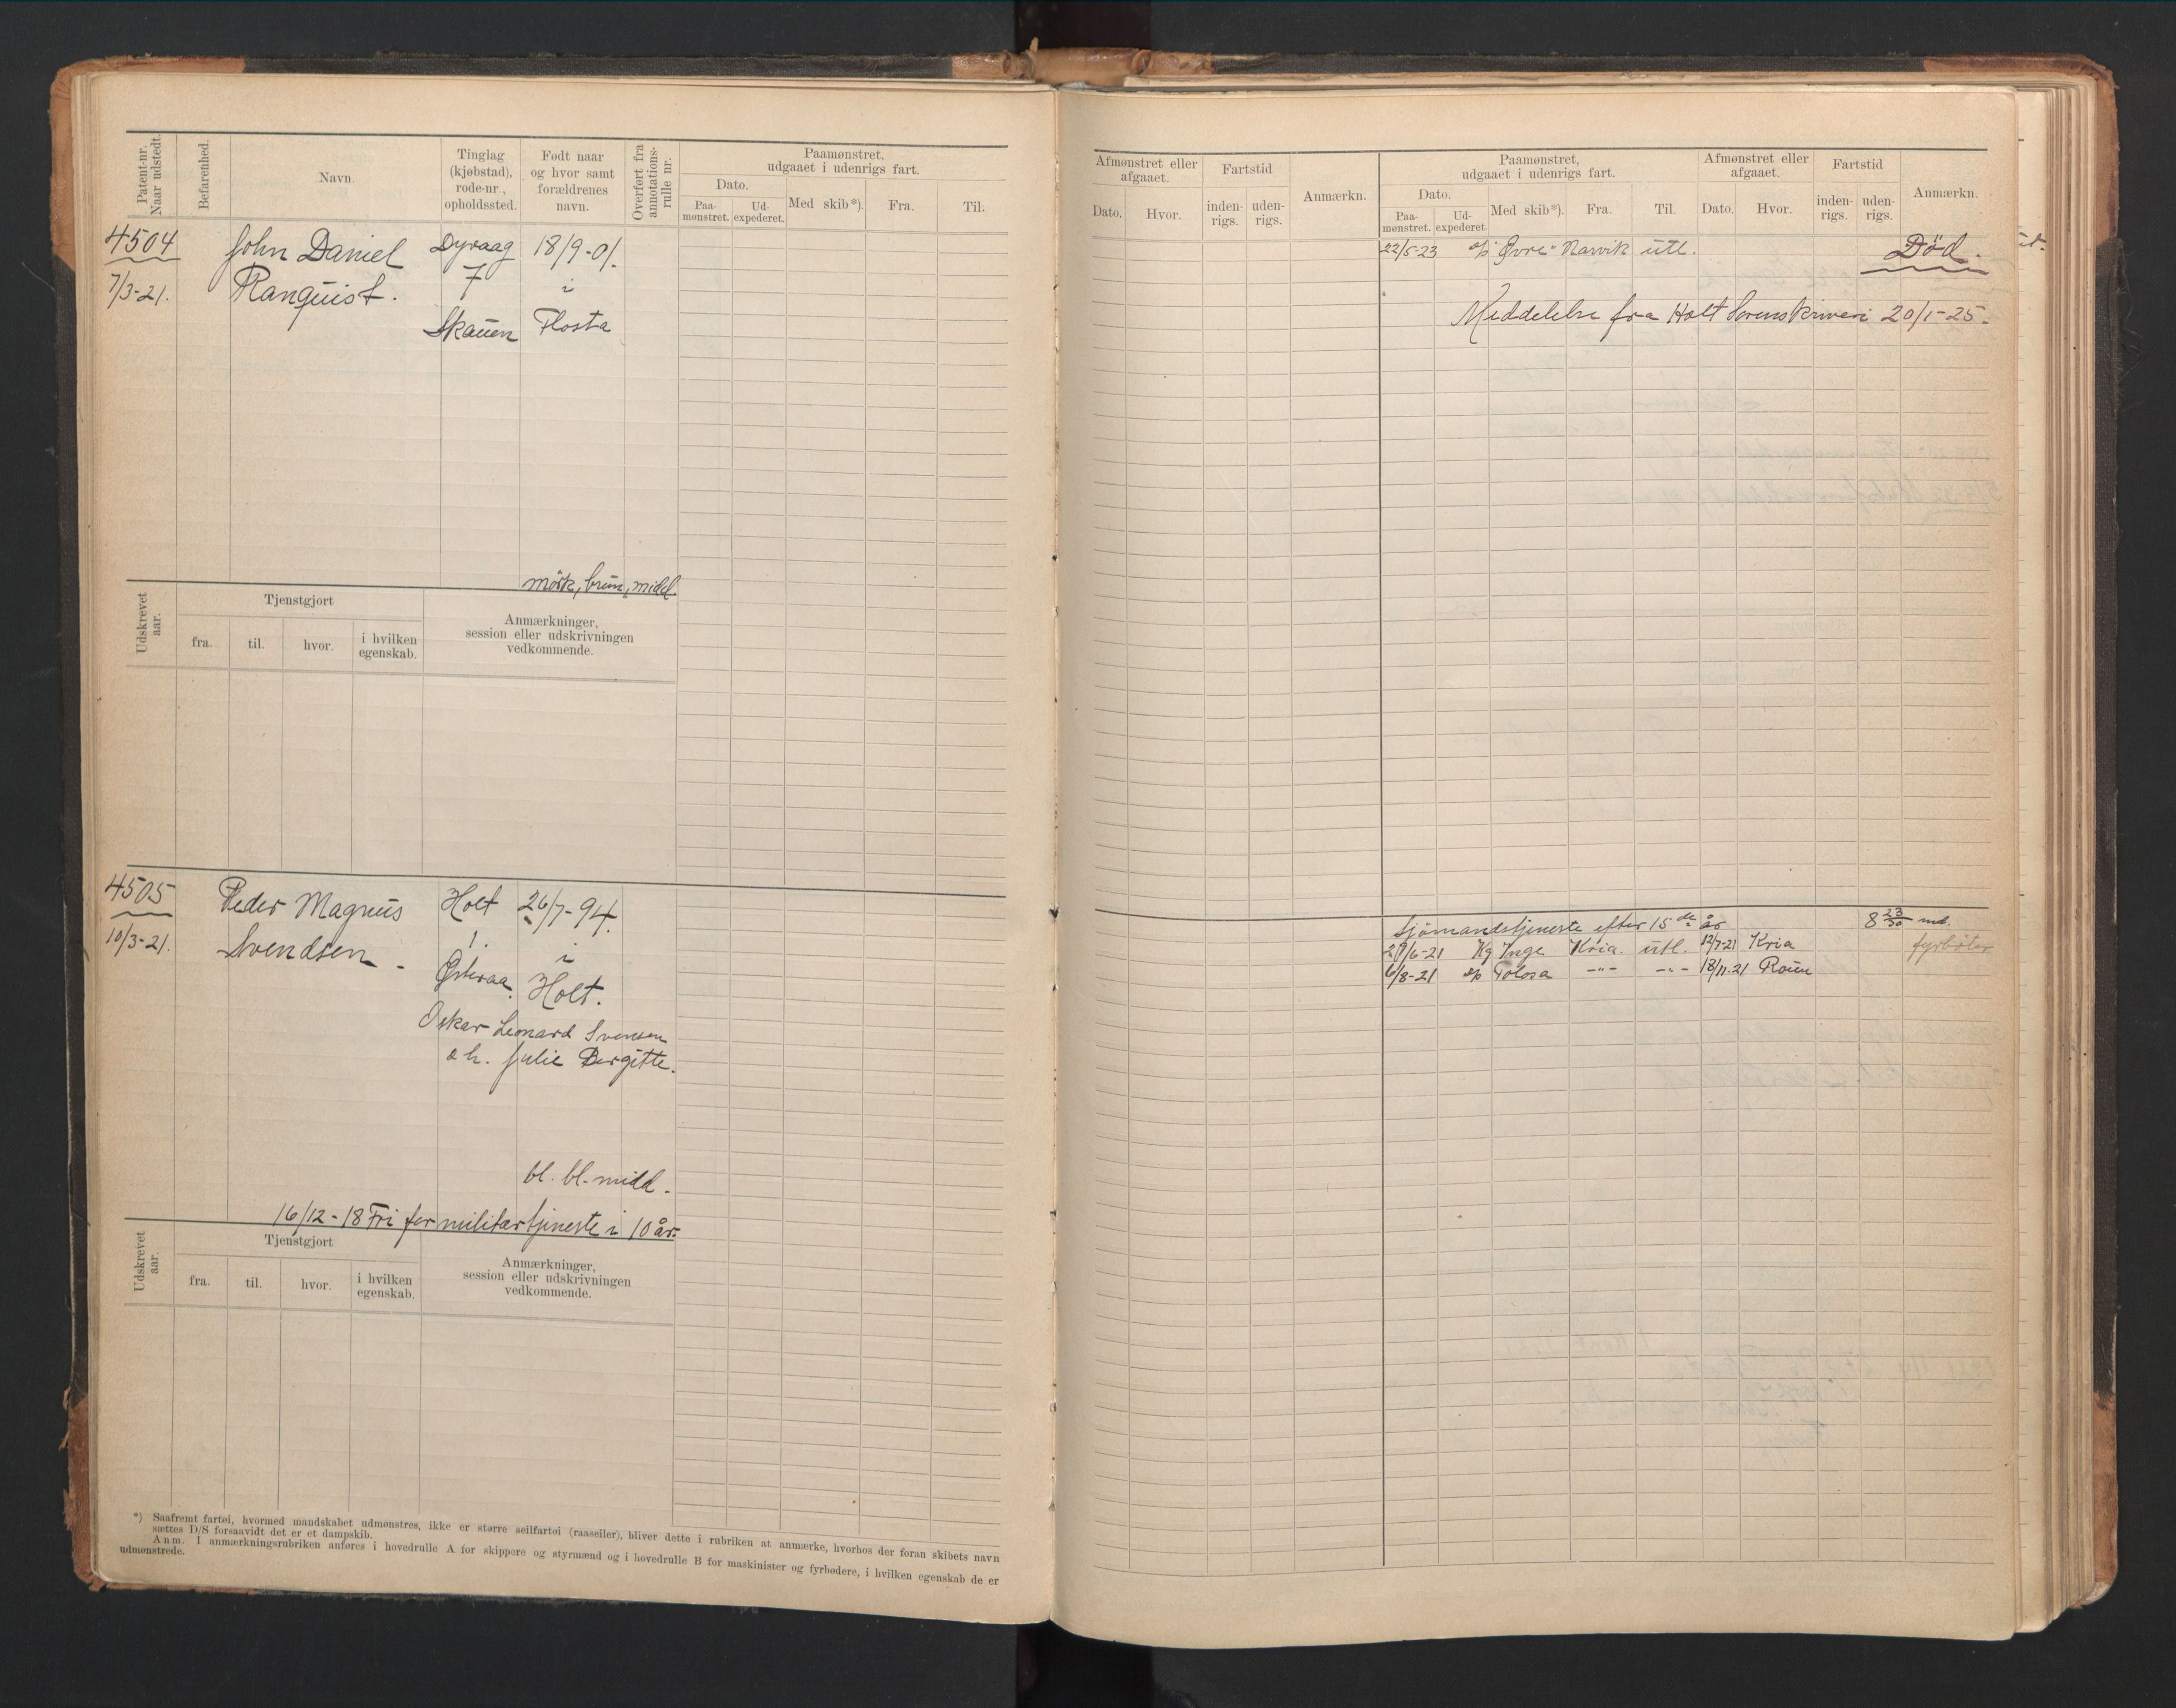 Patent-nr.
Naar udstedt.
Befarenhed.
Navn.
Tinglag
(kjøbstad),
rode-nr.,
opholdssted.
Født naar
og hvor samt
forældrenes
navn.
Overført fra
annotations-
rulle nr.
Paamønstret,
udgaaet i udenrigs fart.
Dato.
Paa-
mønstret.
Ud-
expederet.
Med skib*).
Fra.
Til.
4504
7/3-21.
John Daniel
Ranquist.
Dyvaag
7
Skauen
18/9-01.
i
Flosta
mørk, brun, midd.
Udskrevet
aar.
Tjenstgjort
fra.
til.
hvor.
i hvilken
egenskab.
Anmærkninger,
session eller udskrivningen
vedkommende.
4505
10/3-21.
Peder Magnus
Svendsen
Holt
1.
Østeraa.
26/7-94.
i
Holt.
Oskar Leonard Svensen
o h. Julie Bergitte.
bl. bl. midd.
16/12-18 Fri for militærtjeneste i 10 år.
Udskrevet
aar.
Tjenstgjort
fra.
til.
hvor.
i hvilken
egenskab.
Anmærkninger,
session eller udskrivningen
vedkommende.
*) Saafremt fartøi, hvormed mandskabet udmønstres, ikke er større seilfartøi (raaseiler), bliver dette i rubriken at anmærke, hvorhos der foran skibets navn
sættes D/S forsaavidt det er et dampskib.
Anm. I anmærkningsrubriken anføres i hovedrulle A for skippere og styrmænd og i hovedrulle B for maskinister og fyrbødere, i hvilken egenskab de er
udmønstrede.
Afmønstret eller
afgaaet.
Dato.
Hvor.
Fartstid
inden-
rigs.
uden-
rigs.
Anmærkn.
Paamønstret,
udgaaet i udenrigs fart.
Dato.
Paa-
mønstret.
Ud-
expederet.
Med skib*).
Fra.
Til.
Afmønstret eller
afgaaet.
Dato.
Hvor.
Fartstid
inden-
rigs.
uden-
rigs.
Anmærkn.
22/5-23 s/s "Øvre" Narvik utl. Død.
Meddelelse fra Holt Sorenskriveri 20/1-25.
Sjömandstjeneste efter 15de år 8 23/30 md.
/6-21 Kg Inge Kria. utl. 12/7-21 Kria fyrböter
6/8-21 s/s Tolosa -"- -"- 18/11-21 Rouen